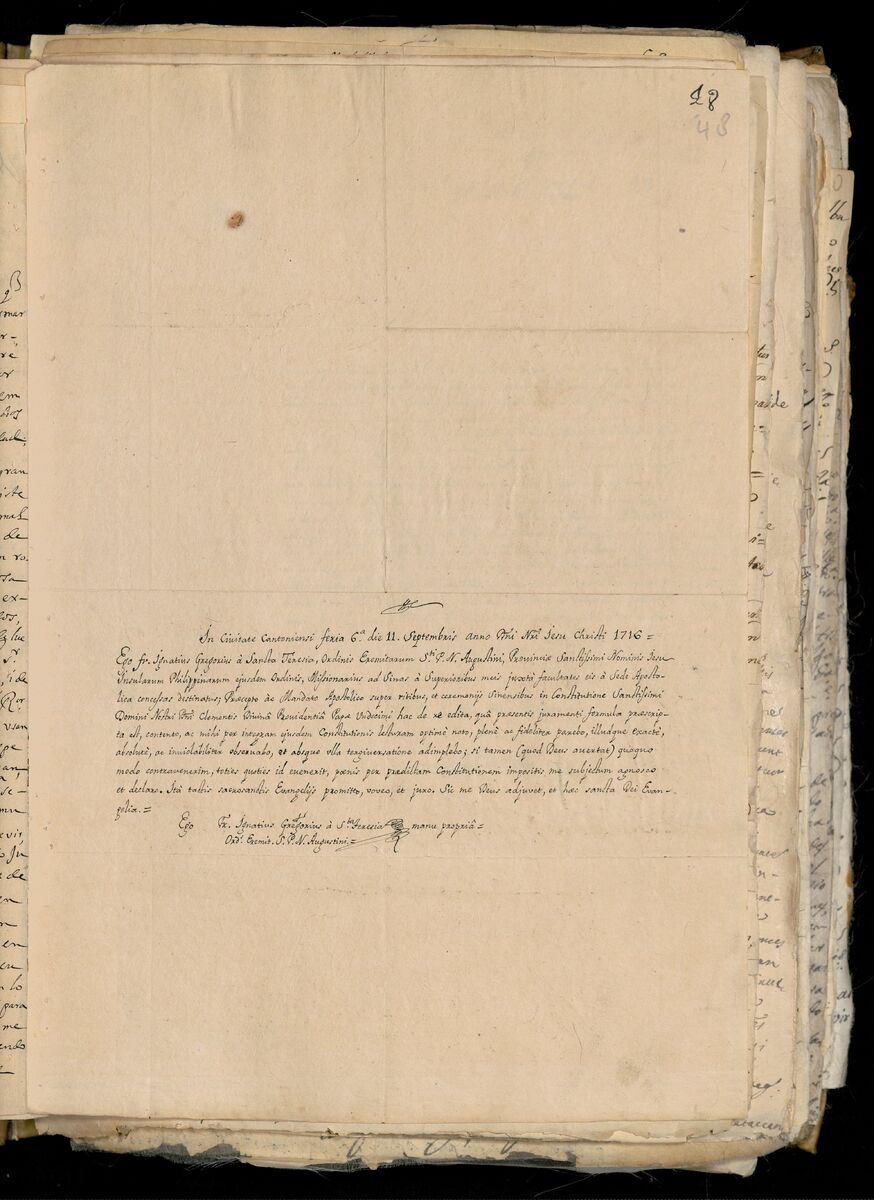 28
48
In Civitate Cantoniensi feria 6.a die 11. Septembris anno Dni Nri Jesu Christi 1716=
Ego fr. Ignatius Gregorius à Sancta Teresia, Ordinis Eremitarum S.ti P. N. Augustini, Provinciæ Santissimi Nominis Jesu
Insularum Philippinarum ejusdem Ordinis, Missionarius ad Sinas à Superioribus meis juxtà facultates eis à Sede Aposto-
lica concessas destinatus; Præcepto àc Mandato Apostolico super ritibus, et ceremonijs Sinensibus in Constitutione Santissimi
Domini Nostri Dni Clementis Divinâ Providentiâ Papæ Undecimi hac de re edita, quâ præsentis juramenti formula præscrip-
ta est, contento, ac mihi per integram ejusdem Constitutionis lecturam optimè noto, plenè ac fideliter parebo, illudque exactè,
absolutè, ac inviolabiliter observabo, et absque ulla tergiversatione adimplebo; si tamen (quod Deus avertat) quoquo
modo contravenerim, toties quoties id evenerit, pœnis per prædictam Constitutionem impositis me subjectum agnosco
et declaro. Ità tactis sacrosanctis Evangelijs promitto, voveo, et juro. Sic me Deus adjuvet, et hæc sancta Dei Evan-
gelia.=
Ego Fr. Ignatius Gregorius à S.ta Teresia manu propriâ=
Ord.s Eremit. S. P. N. Augustini.=